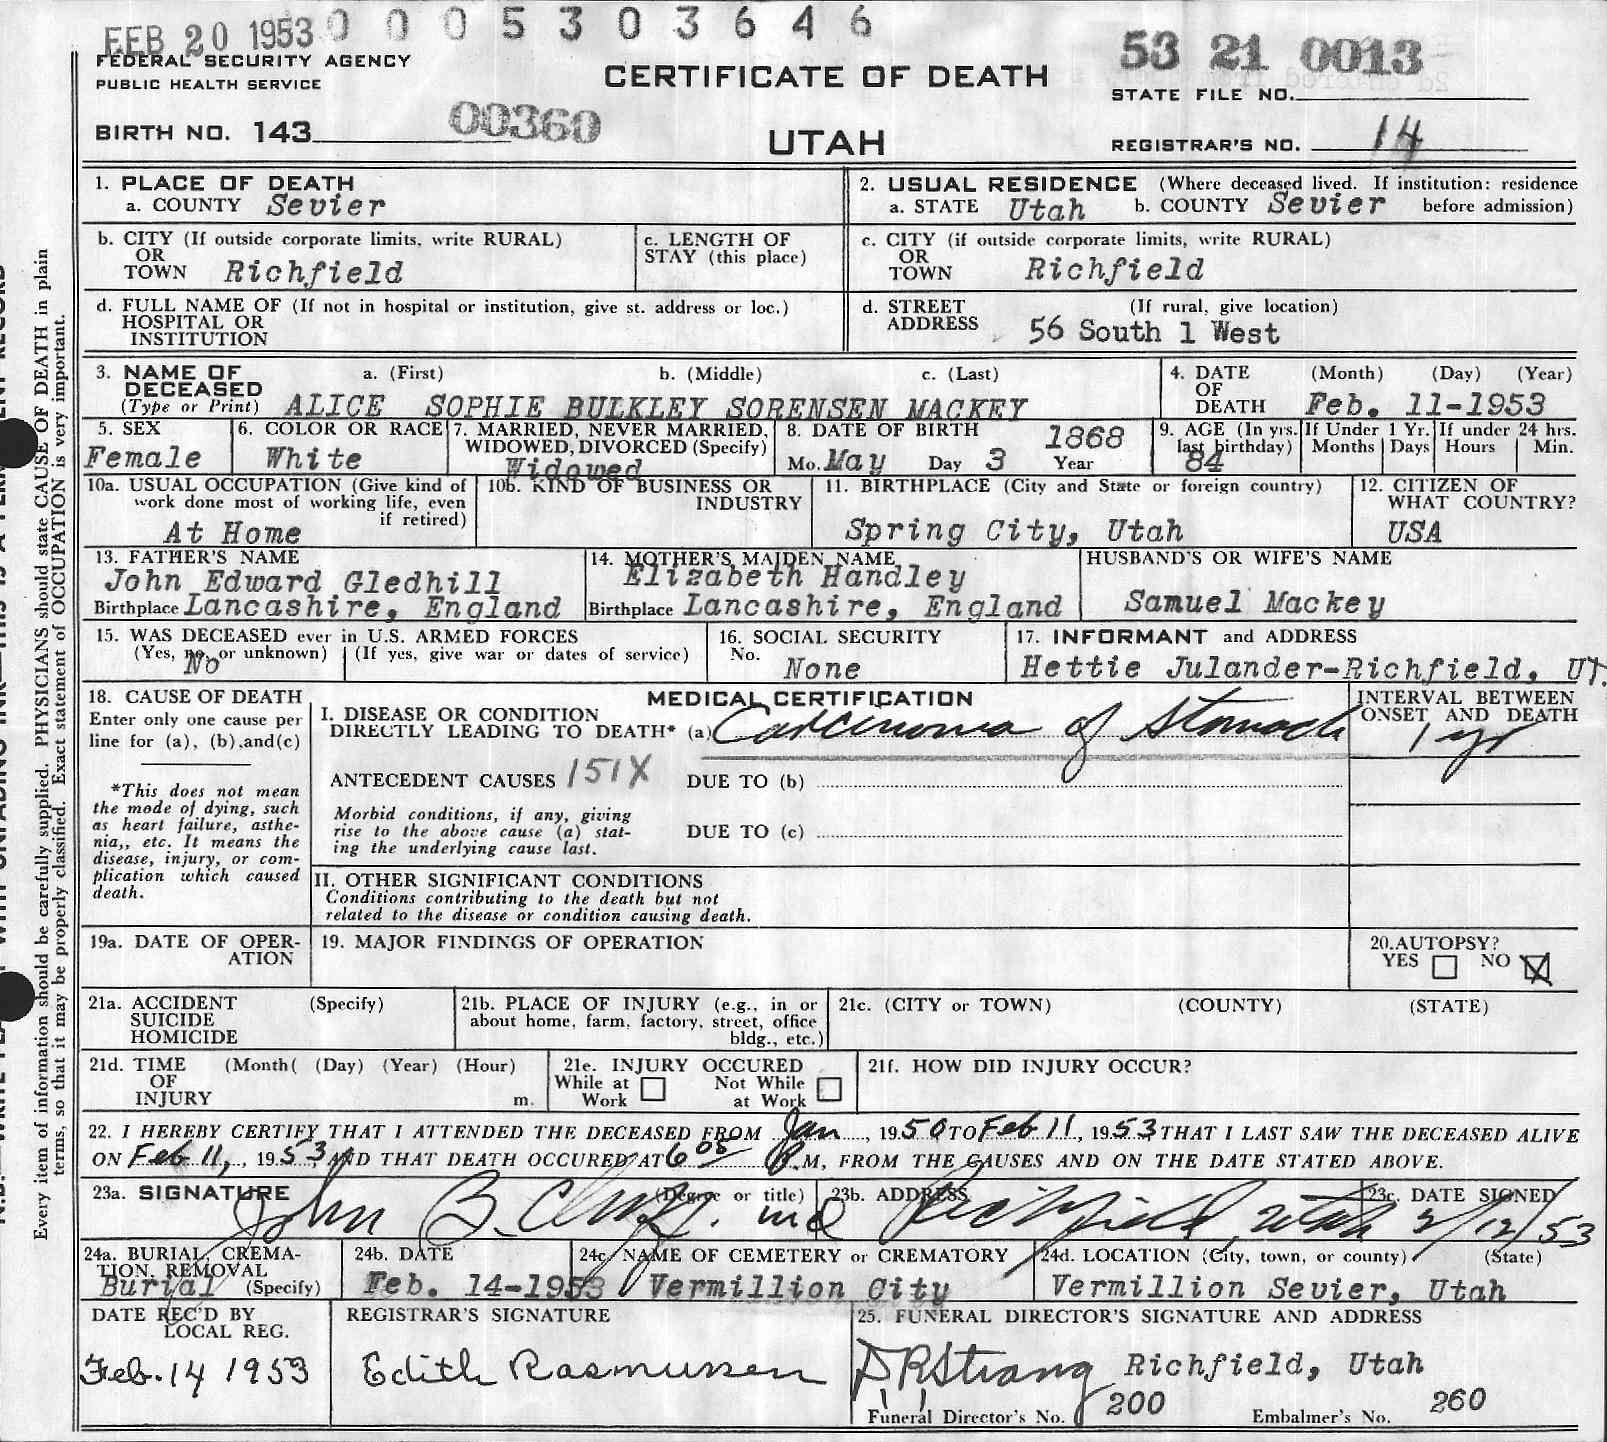 FEB 20 1953 0 0 0 5 3 0 3 6 4 6
FEDERAL SECURITY AGENCY
PUBLIC HEALTH SERVICE
CERTIFICATE OF DEATH
53 21 0013
STATE FILE NO.
BIRTH NO. 143 00360
UTAH
REGISTRAR'S NO. 14
1. PLACE OF DEATH
a. COUNTY Sevier
2. USUAL RESIDENCE (Where deceased lived. If institution: residence
a. STATE Utah b. COUNTY Sevier before admission)
b. CITY (If outside corporate limits, write RURAL)
OR
TOWN Richfield
c. LENGTH OF
STAY (this place)
c. CITY (if outside corporate limits, write RURAL)
OR
TOWN Richfield
d. FULL NAME OF (If not in hospital or institution, give st. address or loc.)
HOSPITAL OR
INSTITUTION
d. STREET (If rural, give location)
ADDRESS 56 South 1 West
3. NAME OF a. (First) b. (Middle) c. (Last)
DECEASED
(Type or Print) ALICE SOPHIE BULKLEY SORENSEN MACKEY
4. DATE (Month) (Day) (Year)
OF
DEATH Feb. 11-1953
5. SEX
Female
6. COLOR OR RACE
White
7. MARRIED, NEVER MARRIED,
WIDOWED, DIVORCED (Specify)
Widowed
8. DATE OF BIRTH 1868
Mo. May Day 3 Year
9. AGE (In yrs.
last birthday)
84
If Under 1 Yr.
Months Days
If under 24 hrs.
Hours Min.
10a. USUAL OCCUPATION (Give kind of
work done most of working life, even
if retired)
At Home
10b. KIND OF BUSINESS OR
INDUSTRY
11. BIRTHPLACE (City and State or foreign country)
Spring City, Utah
12. CITIZEN OF
WHAT COUNTRY?
USA
13. FATHER'S NAME
John Edward Gledhill
Birthplace Lancashire, England
14. MOTHER'S MAIDEN NAME
Elizabeth Handley
Birthplace Lancashire, England
HUSBAND'S OR WIFE'S NAME
Samuel Mackey
15. WAS DECEASED ever in U.S. ARMED FORCES
(Yes, no, or unknown) (If yes, give war or dates of service)
No
16. SOCIAL SECURITY
No. None
17. INFORMANT and ADDRESS
Hettie Julander-Richfield, UT.
18. CAUSE OF DEATH
Enter only one cause per
line for (a), (b), and (c)
*This does not mean
the mode of dying, such
as heart failure, asthe-
nia,, etc. It means the
disease, injury, or com-
plication which caused
death.
MEDICAL CERTIFICATION
I. DISEASE OR CONDITION
DIRECTLY LEADING TO DEATH* (a) Carcinoma of Stomach
INTERVAL BETWEEN
ONSET AND DEATH
1 yr
ANTECEDENT CAUSES 151X DUE TO (b)
Morbid conditions, if any, giving
rise to the above cause (a) stat-
ing the underlying cause last.
DUE TO (c)
II. OTHER SIGNIFICANT CONDITIONS
Conditions contributing to the death but not
related to the disease or condition causing death.
19a. DATE OF OPER-
ATION
19. MAJOR FINDINGS OF OPERATION
20. AUTOPSY?
YES NO
21a. ACCIDENT (Specify)
SUICIDE
HOMICIDE
21b. PLACE OF INJURY (e.g., in or
about home, farm, factory, street, office
bldg., etc.)
21c. (CITY or TOWN) (COUNTY) (STATE)
21d. TIME (Month( (Day) (Year) (Hour)
OF
INJURY m.
21e. INJURY OCCURED
While at Not While
Work at Work
21f. HOW DID INJURY OCCUR?
22. I HEREBY CERTIFY THAT I ATTENDED THE DECEASED FROM Jan, 1950 TO Feb 11, 1953 THAT I LAST SAW THE DECEASED ALIVE
ON Feb 11, 1953, AND THAT DEATH OCCURED AT 6 05 P.M, FROM THE CAUSES AND ON THE DATE STATED ABOVE.
23a. SIGNATURE (Degree or title) 23b. ADDRESS 23c. DATE SIGNED
John B. md Richfield, Utah 2/12/53
24a. BURIAL, CREMA-
TION, REMOVAL
Burial (Specify)
24b. DATE
Feb. 14-1953
24c. NAME OF CEMETERY or CREMATORY
Vermillion City
24d. LOCATION (City, town, or county) (State)
Vermillion Sevier, Utah
DATE REC'D BY
LOCAL REG.
Feb. 14 1953
REGISTRAR'S SIGNATURE
Edith Rasmussen
25. FUNERAL DIRECTOR'S SIGNATURE AND ADDRESS
Strang Richfield, Utah
Funeral Director's No. 200 Embalmer's No. 260
Every item of information should be carefully supplied. PHYSICIANS should state CAUSE OF DEATH in plain
terms, so that it may be properly classified. Exact statement of OCCUPATION is very important.